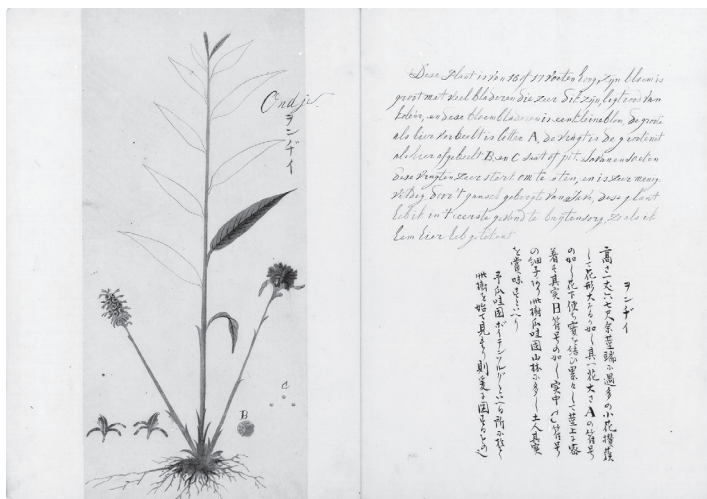 Ondje.
ヲンデイ
B
C
Dese Plant is van 16 of 17 voeten hoog, zijn bloem is
groot met veel bladeren die zeer dik zijn, ligt rood van
koleur, en dese bloembladeren is een kleine blom, de groote
als hier verbeelt is letter A, de vrugt is de groote
als hier afgebeelt B, en C saat of pit. Javanen
dese vrugten zeer om te eten, en is zeer menig
door't gansch van Java, dese plant
heb ik in't eerste te buytensorg, zo als ik
hem hier heb getekent
ヲンデイ
高さ一丈六七尺余茎端ニ過多の小花攅簇
して花形大なる如し其一花大さAの符号
の如し花下便ち実を結び累々として茎上に露
着す其実B符号の如し実中C符号
の細子有り此樹瓜哇国山林ニ多し土人其実
を賞味すと云り
予瓜哇国ボイテンソルグと云る所に於て
此樹を始て見たり則爰に図する